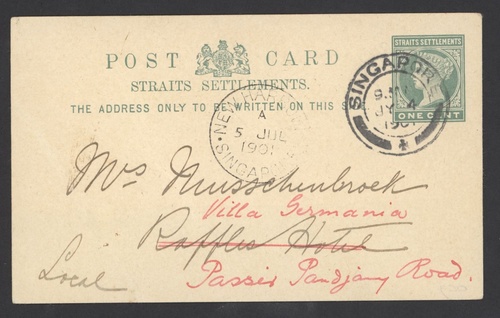 POST CARD
STRAITS SETTLEMENTS.
THE ADDRESS ONLY TO BE WRITTEN ON THIS S
STRAITS SETTLEMENTS
ONE CENT
SINGAPORE
JY 4
1901
NEW HAR
A
5 JUL
1901
SINGAPO
Mrs Musschenbroek
Villa Germania
Raffles Hotel
Local
Passir Pandjang Road.